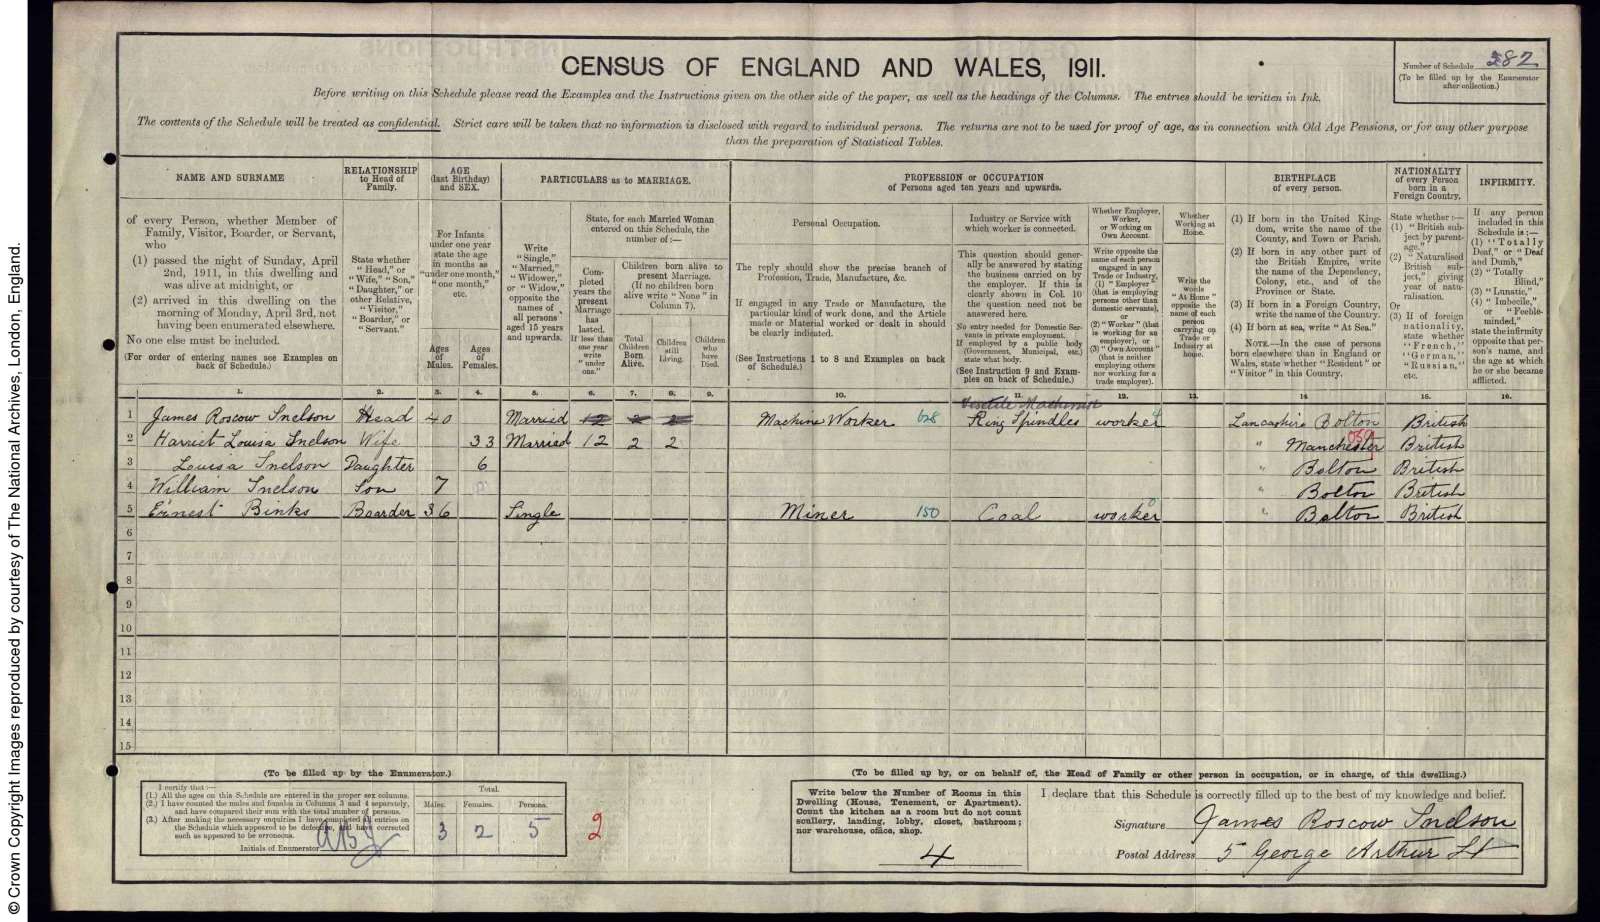 © Crown Copyright Images reproduced by courtesy of The National Archives, London, England.
CENSUS OF ENGLAND AND WALES, 1911.
Number of Schedule 282
(To be filled up by the Enumerator
after collection.)
Before writing on this Schedule please read the Examples and the Instructions given on the other side of the paper, as well as the headings of the Columns. The entries should be written in Ink.
The contents of the Schedule will be treated as confidential. Strict care will be taken that no information is disclosed with regard to individual persons. The returns are not to be used for proof of age, as in connection with Old Age Pensions, or for any other purpose
than the preparation of Statistical Tables.
NAME AND SURNAME
of every Person, whether Member of
Family, Visitor, Boarder, or Servant,
who
(1) passed the night of Sunday, April
2nd, 1911, in this dwelling and
was alive at midnight, or
(2) arrived in this dwelling on the
morning of Monday, April 3rd, not
having been enumerated elsewhere.
No one else must be included.
(For order of entering names see Examples on
back of Schedule.)
RELATIONSHIP
to Head of
Family.
State whether
"Head," or
"Wife," "Son,"
"Daughter," or
other Relative,
"Visitor,"
"Boarder," or
"Servant."
AGE
(last Birthday)
and SEX.
For Infants
under one year
state the age
in months as
"under one month,"
"one month,"
etc.
Ages
of
Males.
Ages
of
Females.
PARTICULARS as to MARRIAGE.
Write
"Single,"
"Married,"
"Widower,"
or "Widow,"
opposite the
names of
all persons
aged 15 years
and upwards.
State, for each Married Woman
entered on this Schedule, the
number of:—
Com-
pleted
years the
present
Marriage
has
lasted.
If less than
one year
write
"under
one."
Children born alive to
present Marriage.
(If no children born
alive write "None" in
Column 7).
Total
Children
Born
Alive.
Children
still
Living.
Children
who
have
Died.
PROFESSION or OCCUPATION
of Persons aged ten years and upwards.
Personal Occupation.
The reply should show the precise branch of
Profession, Trade, Manufacture, &c.
If engaged in any Trade or Manufacture, the
particular kind of work done, and the Article
made or Material worked or dealt in should
be clearly indicated.
(See Instructions 1 to 8 and Examples on back
of Schedule.)
Industry or Service with
which worker is connected.
This question should gener-
ally be answered by stating
the business carried on by
the employer. If this is
clearly shown in Col. 10
the question need not be
answered here.
No entry needed for Domestic Ser-
vants in private employment.
If employed by a public body
(Government, Municipal, etc.)
state what body.
(See Instruction 9 and Exam-
ples on back of Schedule.)
Whether Employer,
Worker,
or Working on
Own Account.
Write opposite the
name of each person
engaged in any
Trade or Industry,
(1) "Employer"
(that is employing
persons other than
domestic servants),
or
(2) "Worker" (that
is working for an
employer), or
(3) "Own Account"
(that is neither
employing others
nor working for a
trade employer).
Whether
Working at
Home.
Write the
words
"At Home"
opposite the
name of each
person
carrying on
Trade or
Industry at
home.
BIRTHPLACE
of every person.
(1) If born in the United King-
dom, write the name of the
County, and Town or Parish.
(2) If born in any other part of
the British Empire, write
the name of the Dependency,
Colony, etc., and of the
Province or State.
(3) If born in a Foreign Country,
write the name of the Country.
(4) If born at sea, write "At Sea."
NOTE.—In the case of persons
born elsewhere than in England or
Wales, state whether "Resident" or
"Visitor" in this Country.
NATIONALITY
of every Person
born in a
Foreign Country.
State whether:—
(1) "British sub-
ject by parent-
age."
(2) "Naturalised
British sub-
ject," giving
year of natu-
ralisation.
Or
(3) If of foreign
nationality,
state whether
"French,"
"German,"
"Russian,"
etc.
INFIRMITY.
If any person
included in this
Schedule is:—
(1) "Totally
Deaf," or "Deaf
and Dumb,"
(2) "Totally
Blind,"
(3) "Lunatic,"
(4) "Imbecile,"
or "Feeble-
minded,"
state the infirmity
opposite that per-
son's name, and
the age at which
he or she became
afflicted.
1. 2. 3. 4. 5. 6. 7. 8. 9. 10. 11. 12. 13. 14. 15. 16.
1 James Roscow Snelson Head 40 Married 12 2 2 Machine Worker 628 Ring Spindles worker Lancashire Bolton British
2 Harriet Louisa Snelson Wife 33 Married 12 2 2 " Manchester 059 British
3 Louisa Snelson Daughter 6 " Bolton British
4 William Snelson Son 7 " Bolton British
5 Ernest Binks Boarder 36 Single Miner 150 Coal worker " Bolton British
6
7
8
9
10
11
12
13
14
15
(To be filled up by the Enumerator.)
I certify that:—
(1.) All the ages on this Schedule are entered in the proper sex columns.
(2.) I have counted the males and females in Columns 3 and 4 separately,
and have compared their sum with the total number of persons.
(3.) After making the necessary enquiries I have completed all entries on
the Schedule which appeared to be defective, and have corrected
such as appeared to be erroneous.
Initials of Enumerator
Total.
Males. Females. Persons.
3 2 5
2
(To be filled up by, or on behalf of, the Head of Family or other person in occupation, or in charge, of this dwelling.)
Write below the Number of Rooms in this
Dwelling (House, Tenement, or Apartment).
Count the kitchen as a room but do not count
scullery, landing, lobby, closet, bathroom;
nor warehouse, office, shop.
4
I declare that this Schedule is correctly filled up to the best of my knowledge and belief.
Signature James Roscow Snelson
Postal Address 5 George Arthur St